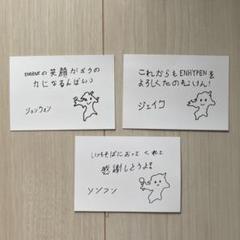 ENGENEの笑顔がぼくの
力になるんばい♪
ジョンウォン
これからもENHYPENを
よろしくたのむけん!
ジェイク
いつもそばにおってくれて
感謝しとうよ!
ソンフン